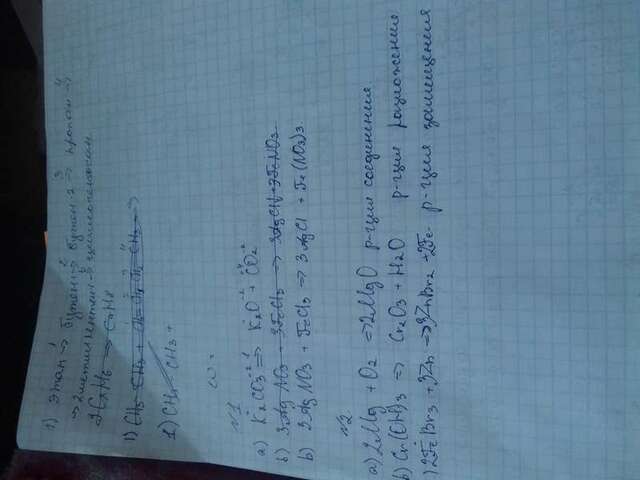 1) этан →¹ бутен →² бутен-2 →³ пропан →⁴
→ 2метилпентен →⁵ циклогексан
2C₂H₆ → C₄H₈
1) CH₃ - CH₃ +
1) CH₃ - CH₃ +
ω =
N1
а) K₂CO₃⁻² ⇒ K₂O⁻² + CO₂⁻²
b) 3AgNO₃ + 3FeCl₃ → 3AgCl + 3FeNO₃
b) 3AgNO₃ + FeCl₃ ⇒ 3AgCl + Fe(NO₃)₃
N2
а) 2Mg + O₂ ⇒ 2MgO р-ция соединения
b) Cr(OH)₃ ⇒ Cr₂O₃ + H₂O р-ция разложения
) 2FeBr₃ + 3Zn ⇒ 3ZnBr₂ + 2Fe р-ция замещения